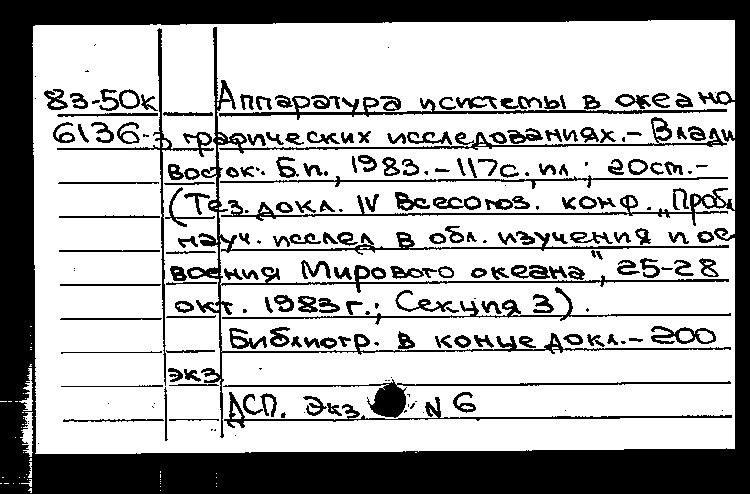 83-50к Аппаратура и системы в океано
6136-з графических исследованиях.- Влади
восток: Б.и., 1983.-117с., ил; 20см.-
(Тез. докл. IV Всесоюз. конф. „Пробл.
науч. исслед. в обл. изучения и ос-
воения Мирового океана", 25-28
окт. 1983г.; Секция 3).
Библиогр. в конце докл.- 200
экз
ДСП. Экз. N 6